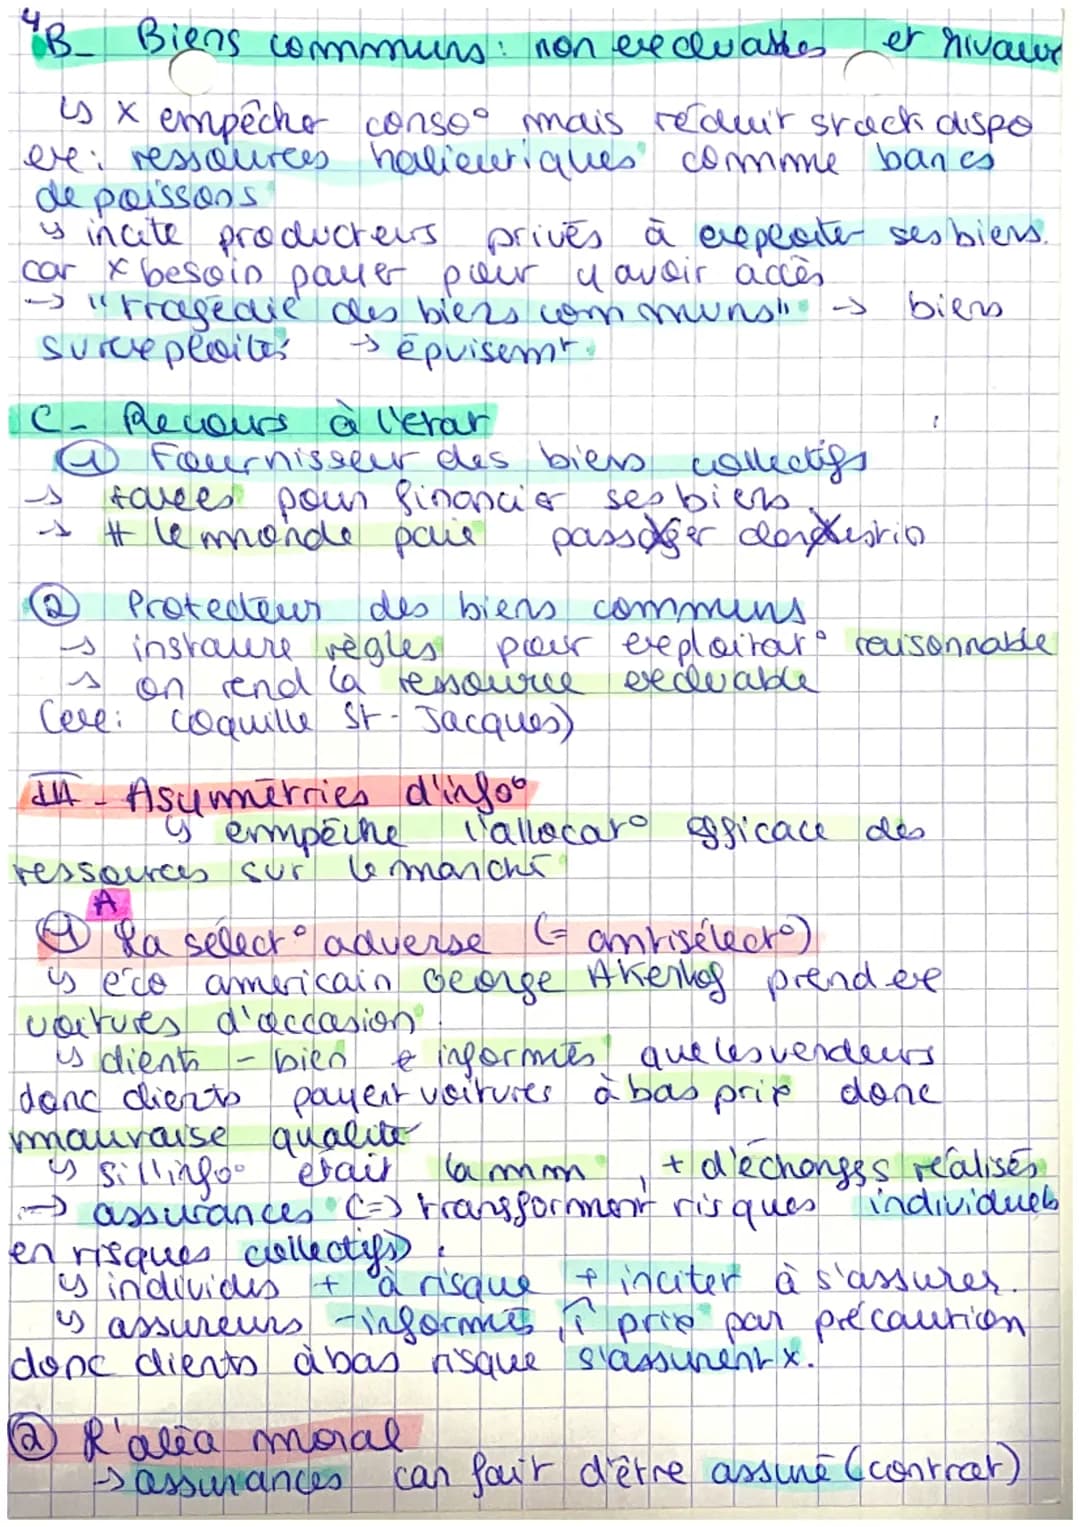 4
B- Biens communs: non excluables et rivaux
↳ x empêcher conso° mais réduit stock dispo
ex: ressources halieutiques comme bancs
de poissons
↳ incite producteurs privés à exploiter ses biens.
car x besoin payer pour y avoir accès
→ "tragédie des biens communs" → biens
surexploités → épuisemt.
C- Recours à l'état
① Fournisseur des biens collectifs
→ taxes pour financier ses biens.
→ # le monde paie passager clandestin
② Protecteur des biens communs
→ instaure règles pour exploitat° raisonnable
→ on rend la ressource excluable
(exe: coquille St-Jacques)
III - Asymétries d'info°
↳ empêche l'allocat° efficace des
ressources sur le marché
A
① La sélect° adverse (= antisélect°)
↳ éco américain George Akerlof prend ex
voitures d'occasion.
↳ clients - bien informés que les vendeurs
donc clients payent voitures à bas prix donc
mauvaise qualité
↳ si l'info° était la mm, + d'échanges réalisés
→ assurances (=> transforment risques individuels
en risques collectifs).
↳ individus + à risque + inciter à s'assurer.
↳ assureurs - informés, ↑ prix par précaution
donc clients à bas risque s'assurent x.
② L'aléa moral
→ assurances car fait d'être assuré (contrat)